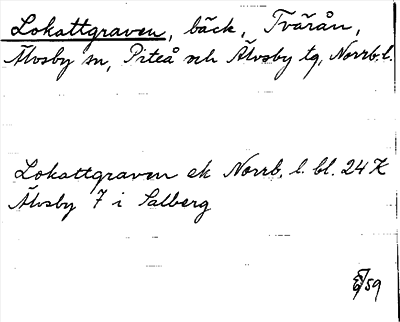 Lokattgraven, bäck, Tvärån,
Älvsby sn, Piteå och Älvsby tg, Norrb. l.
Lokattgraven ek Norrb. l. bl. 24 K
Älvsby 7 i Salberg
/59